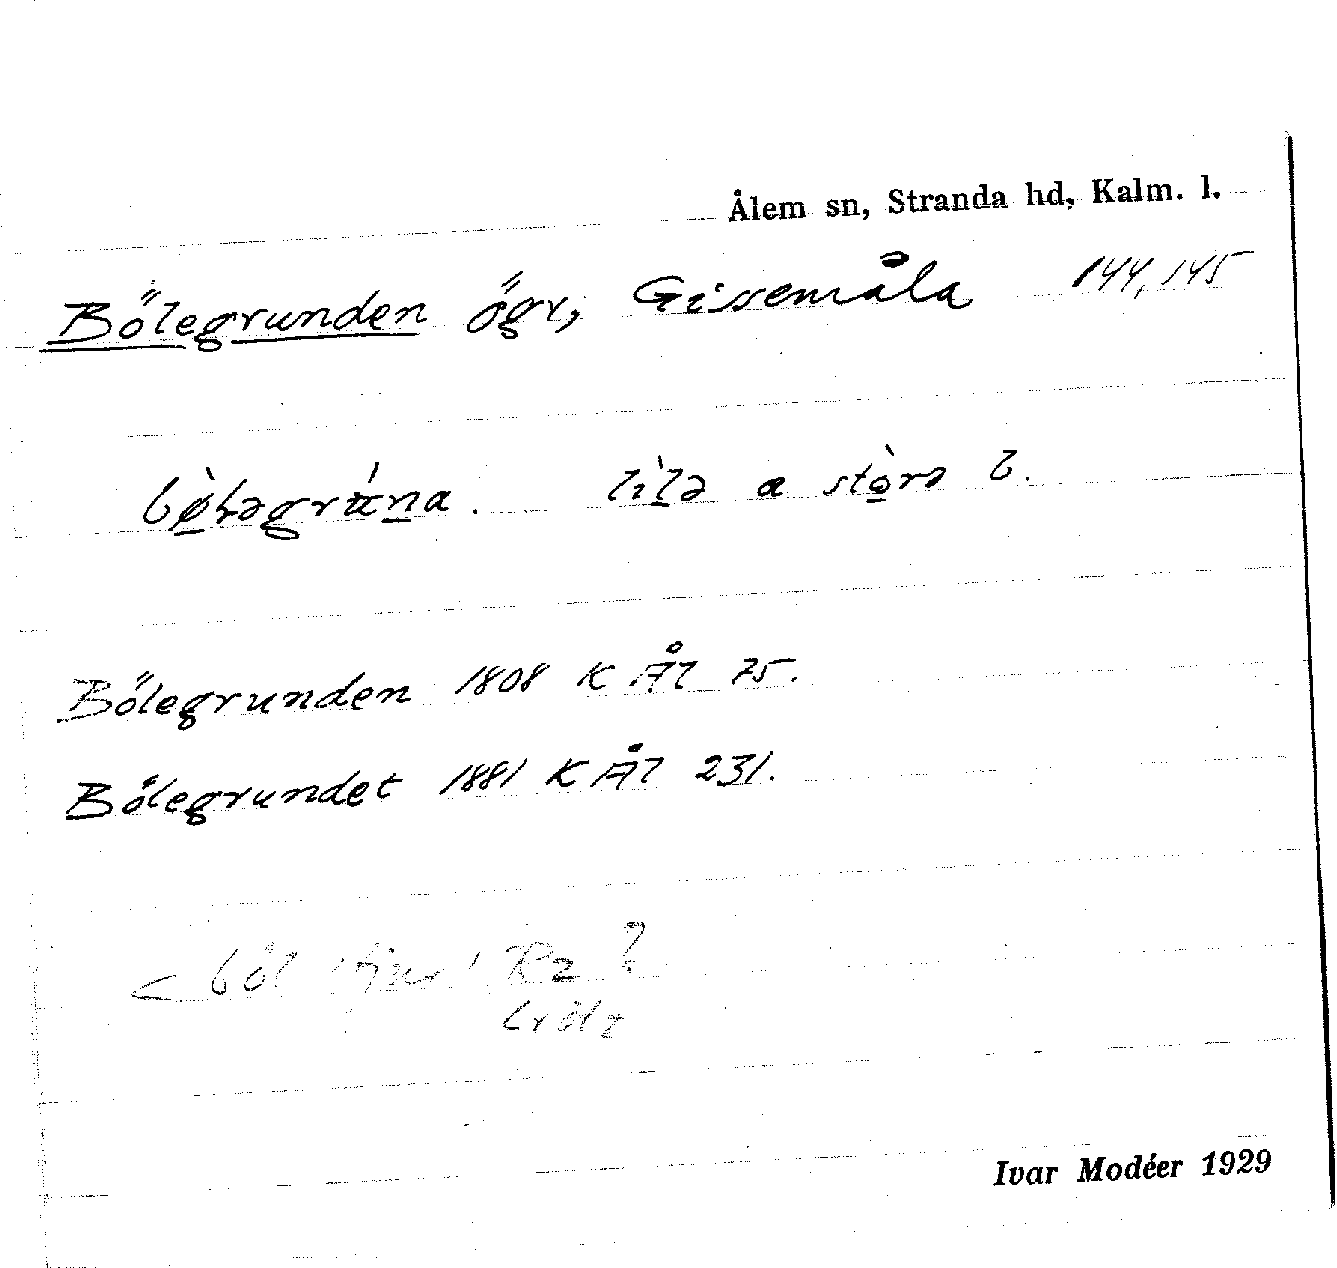 Ålem sn, Stranda hd, Kalm. l.
Bölegrunden ögr, Gissemåla 144, 145
bø̀ləgrúna. lìlə a stòrə b.
Bölegrunden 1808 K Ål 75.
Bölegrundet 1881 K Ål 231.
< böl 'tjur' Rz ?
Ivar Modéer 1929